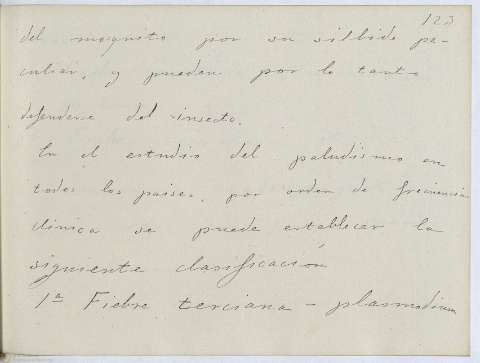 123
del mosquito por su silbido pe-
culiar, y pueden por lo tanto
defenderse del insecto.
En el estudio del paludismo en
todos los paises, por orden de frecuencia
clinica se puede establecer la
siguiente clasificación
1ª Fiebre terciana - plasmodium